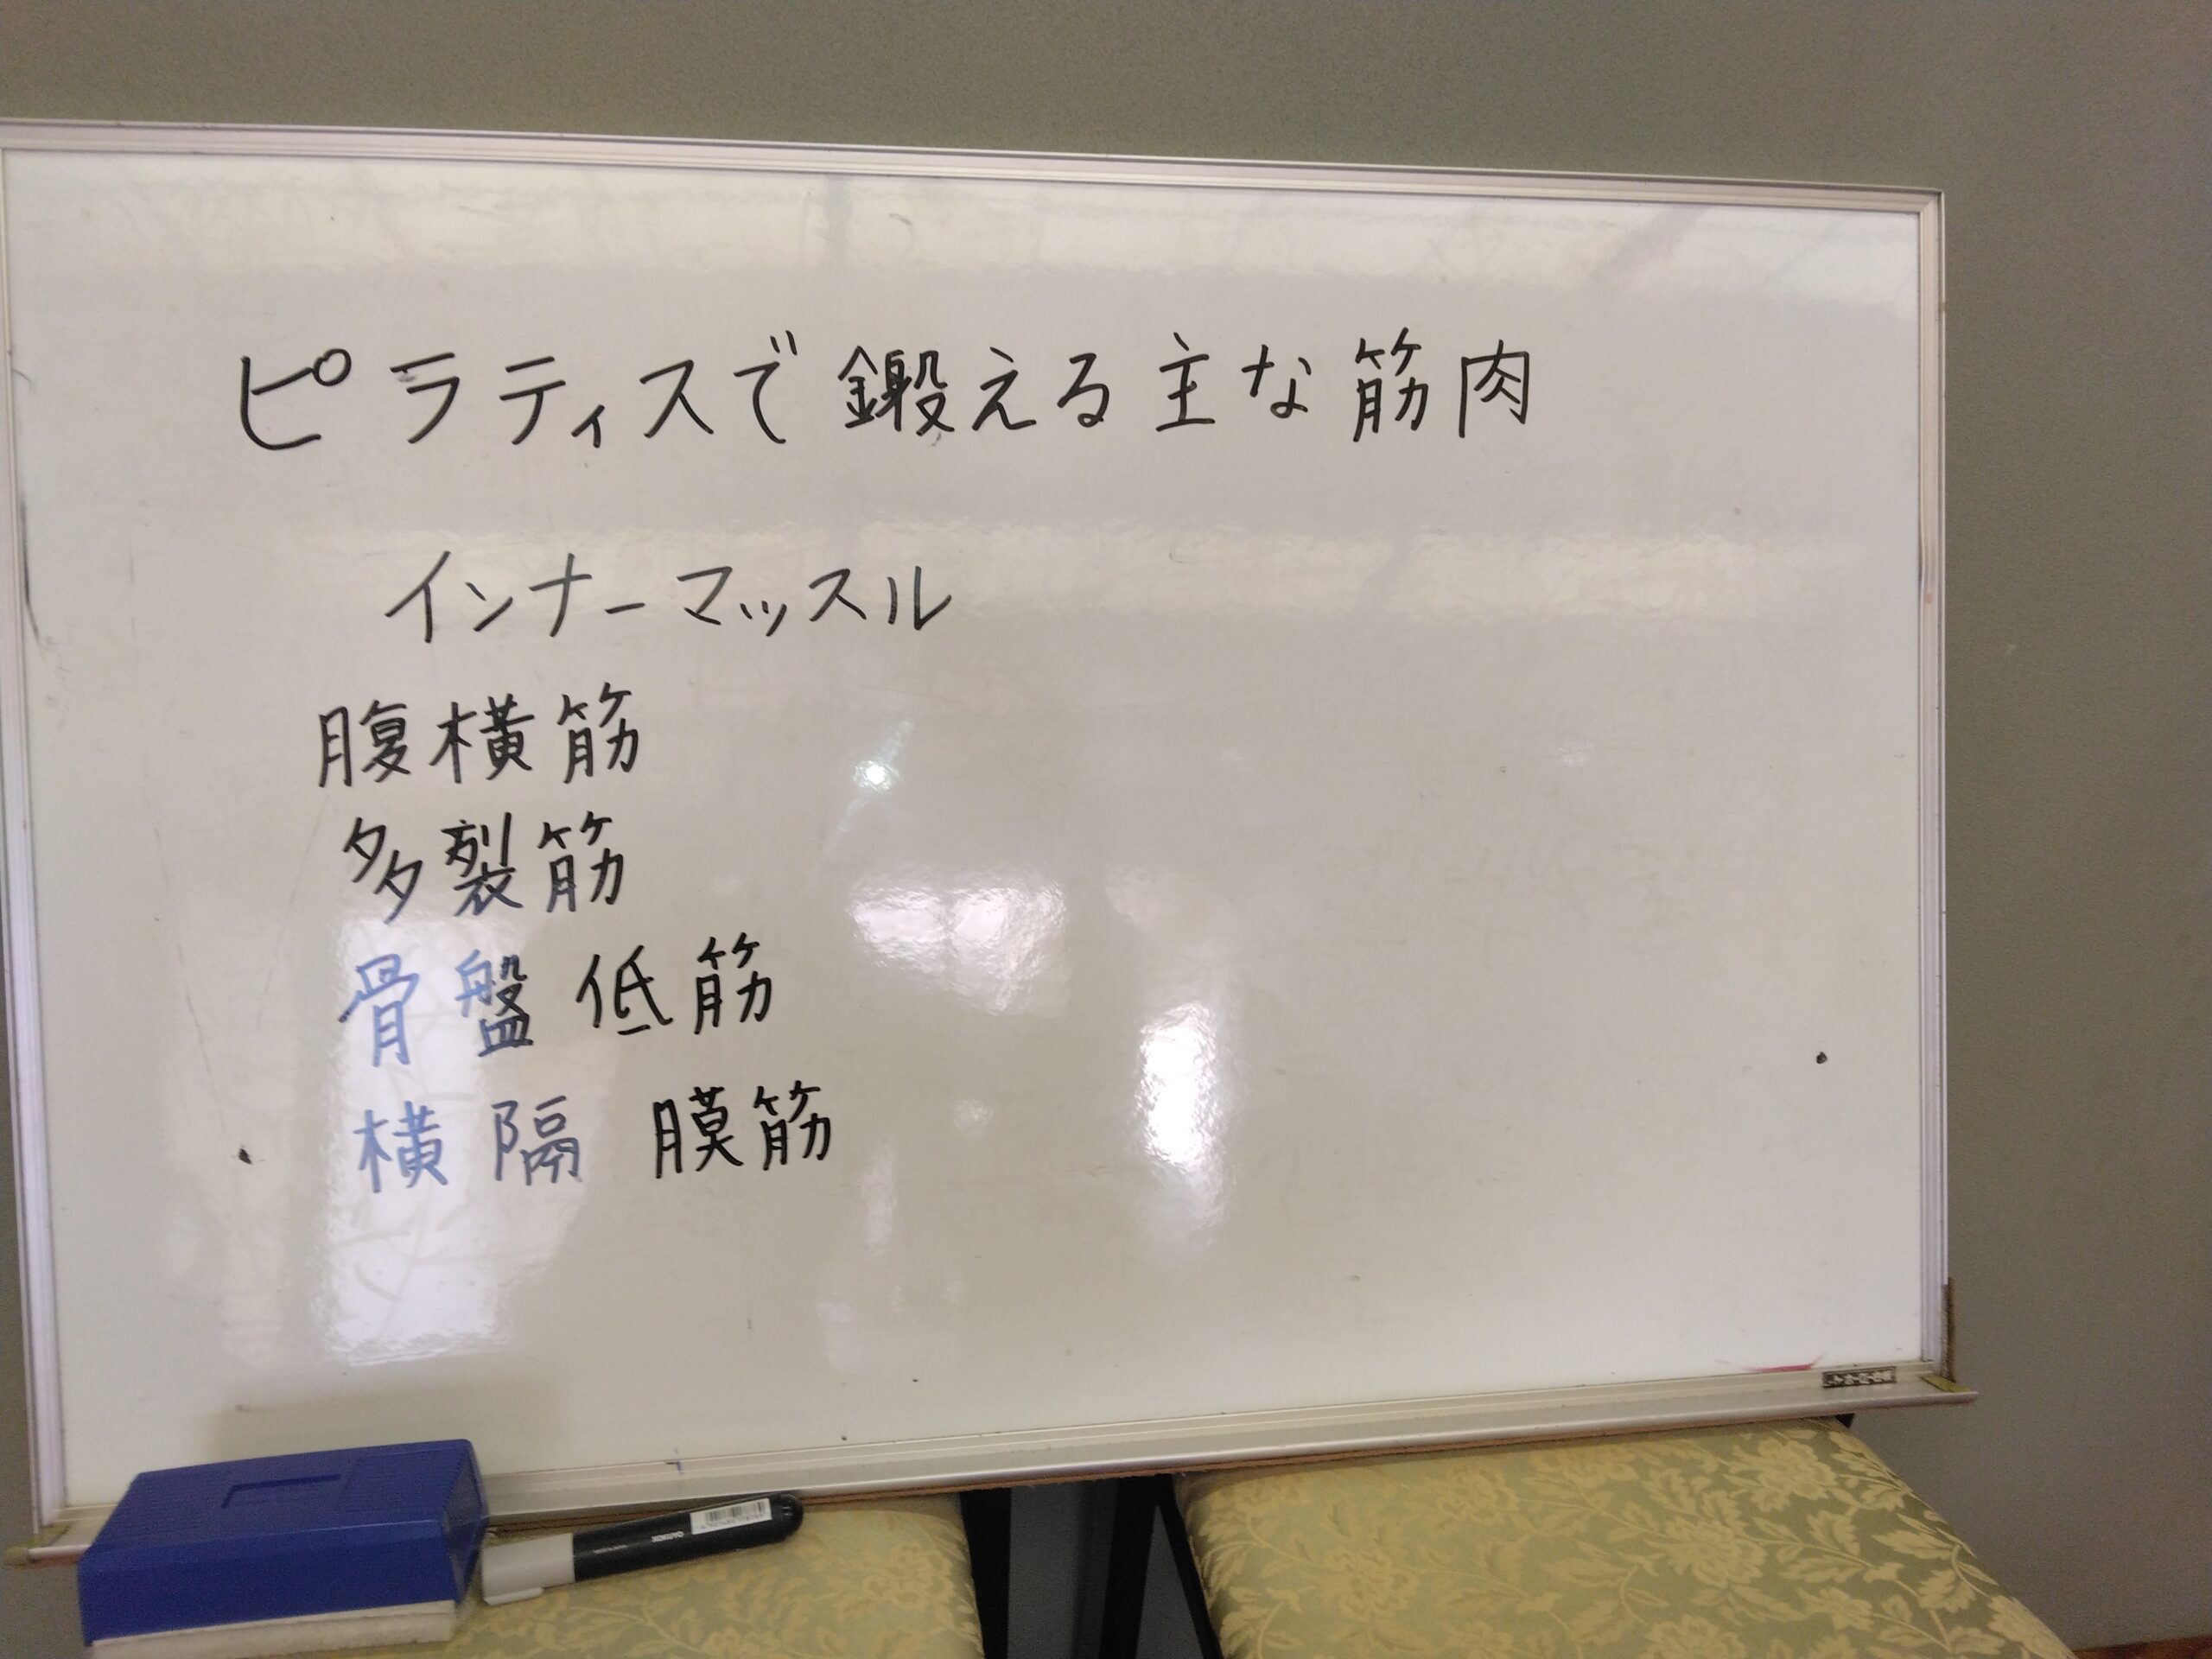 ピラティスで鍛える主な筋肉
インナーマッスル
腹横筋
多裂筋
骨盤低筋
横隔膜筋